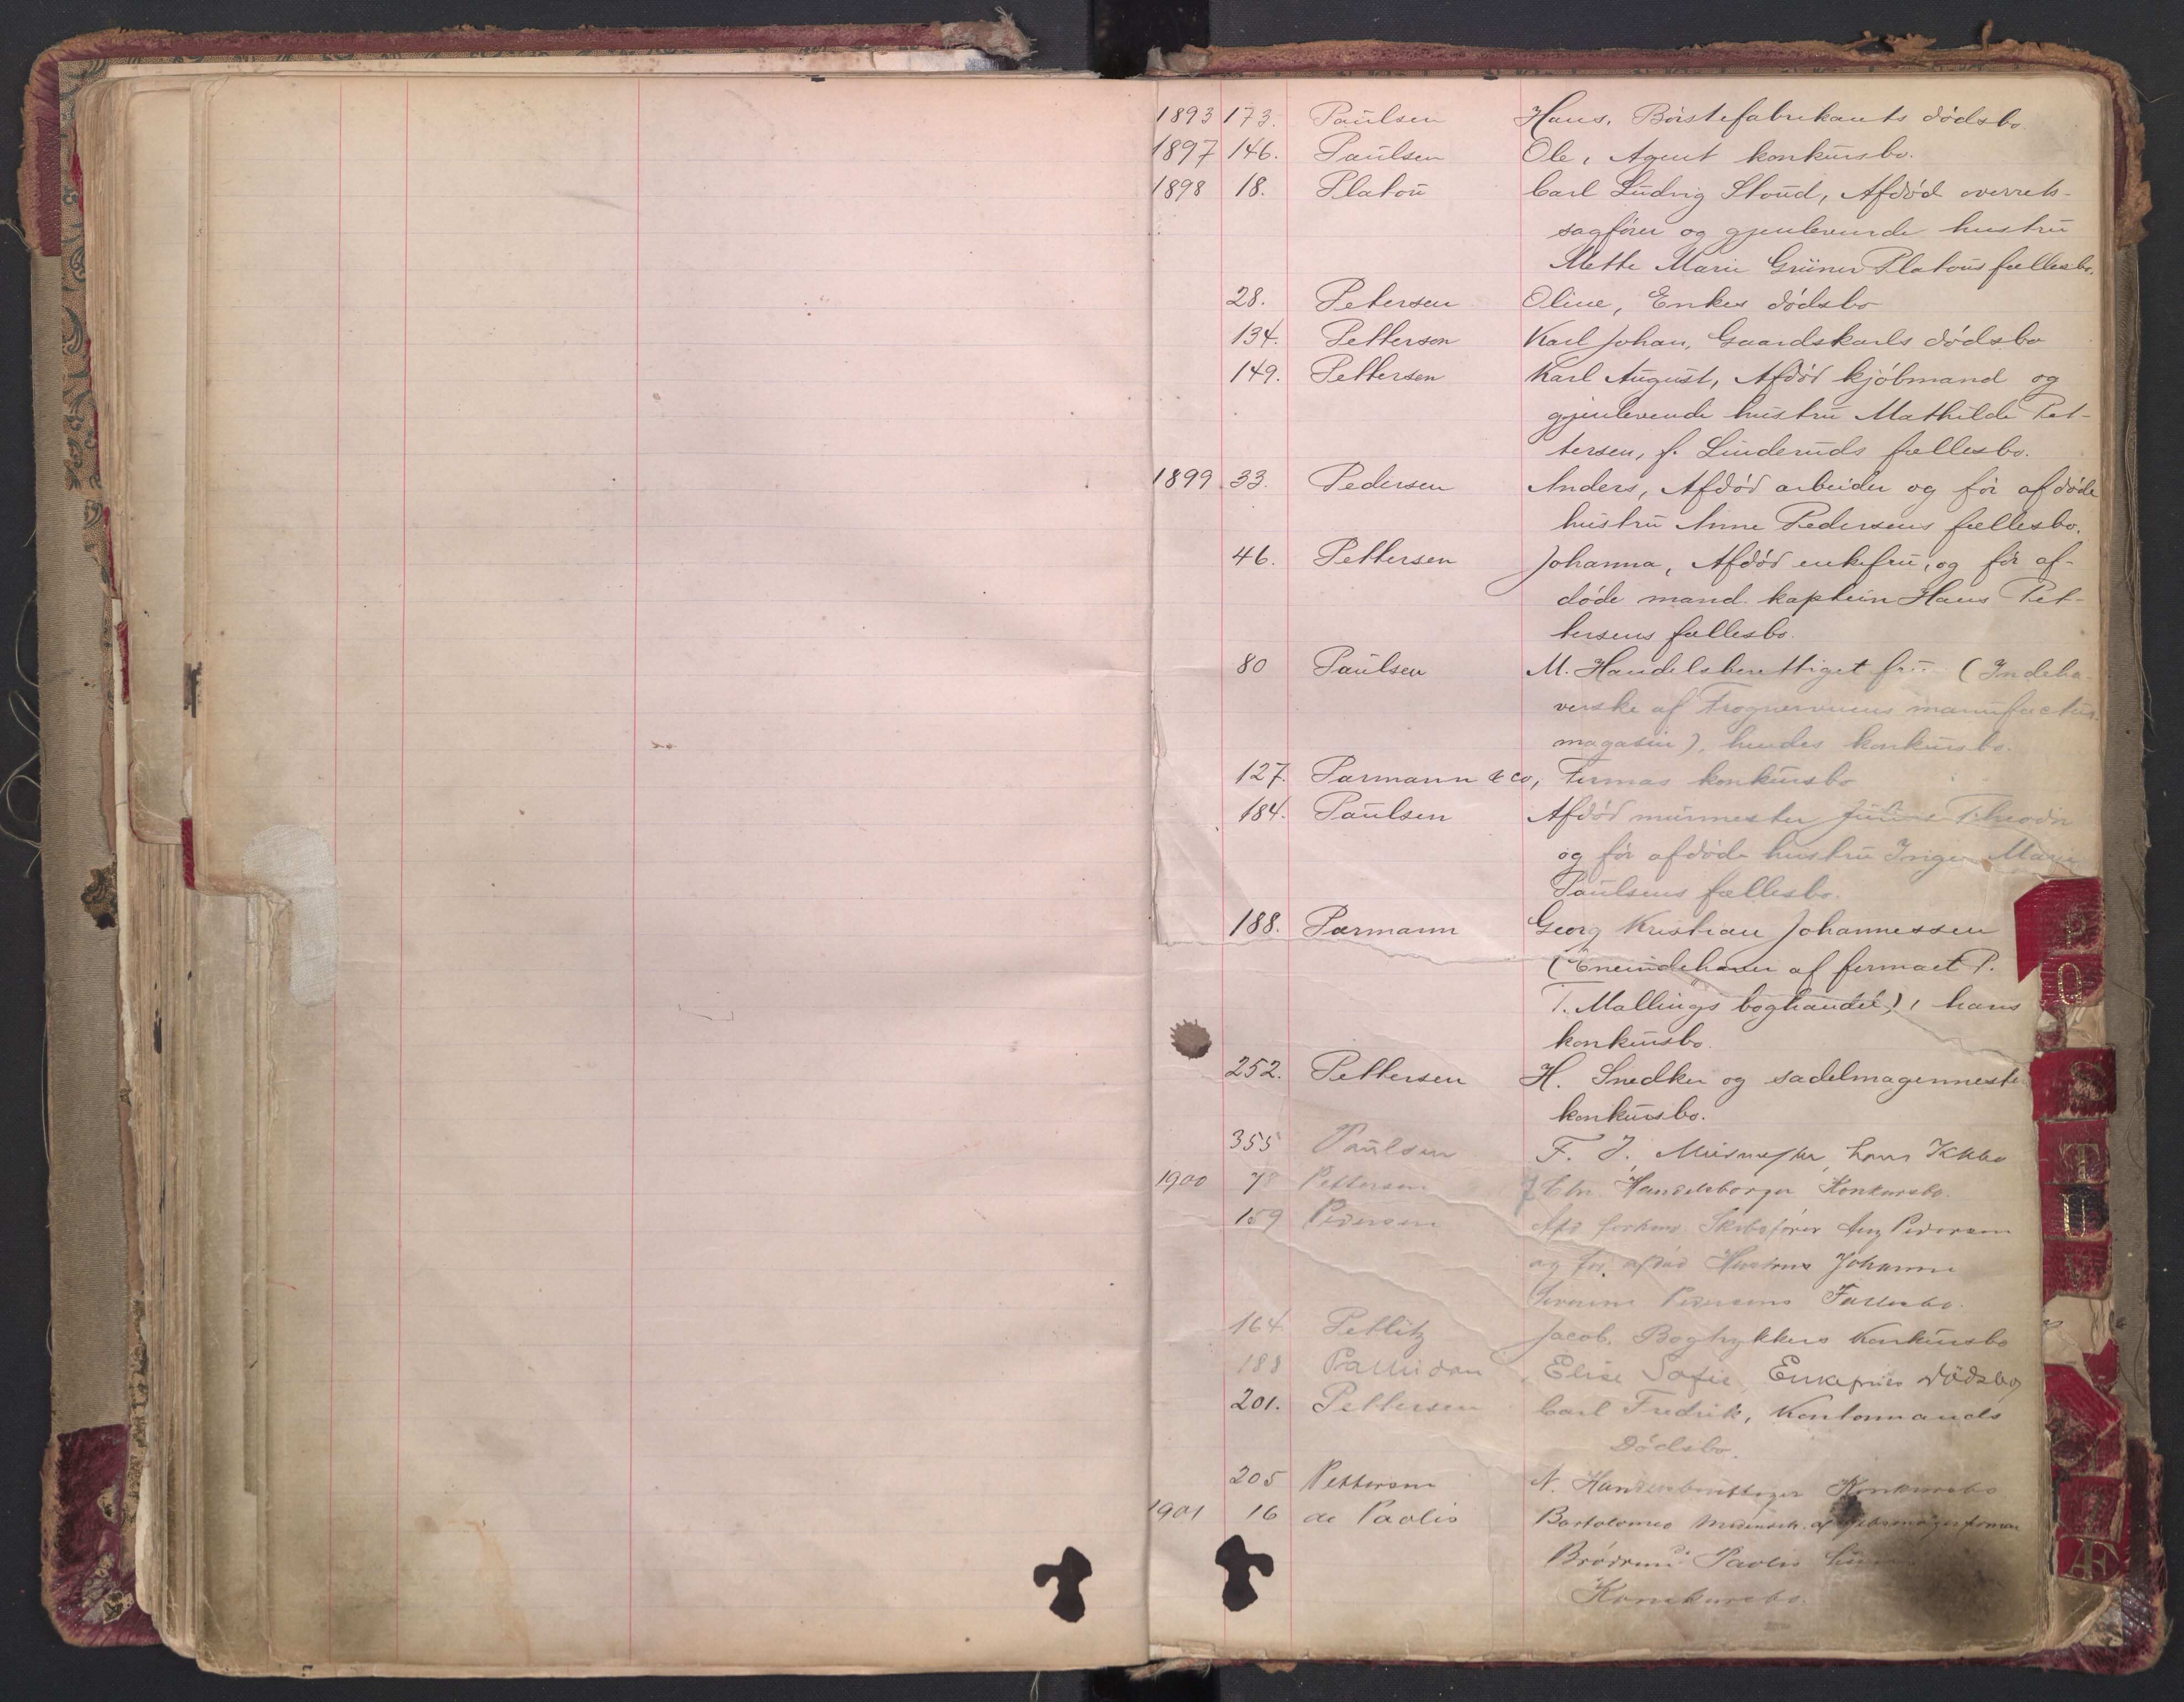 1893 173. Paulsen Hans, Børstefabrikants dødsbo.
1897 146. Paulsen Ole, Agent konkursbo.
1898 18. Platou Carl Ludvig Stoud, Afdød overrets-
sagfører og gjenlevende hustru
Mette Marie Grüner Platous fællesbo.
28. Petersen Oline, Enkes dødsbo
134. Petterson Karl Johan, Gaardskarls dødsbo
149. Pettersen Karl August, Afdød kjøbmand og
gjenlevende hustru Mathilde Pet-
tersen, f. Linderuds fællesbo.
1899 33. Pedersen Anders, Afdød arbeider og før afdøde
hustru Anne Pedersens fællesbo.
46. Pettersen Johanna, Afdød enkefru, og før af-
døde mand kaptein Hans Pet-
tersens fællesbo.
80 Paulsen M. Handelsberettiget fru (Indeha-
verske af Frognerveiens manufactur-
magasin), hendes konkursbo.
127. Parmann & co, Firmas konkursbo
184. Paulsen Afdød murmester Theodor
og før afdøde hustru Inger Marie
Paulsens fællesbo.
188. Parmann Georg Kristian Johannessen
(Eneindehaver af firmaet P.
T. Mallings boghandel), hans
konkursbo.
252. Pettersen H. Snedker og sadelmagermester
konkursbo.
355 Paulsen F. J. Murmester, hans Kkbo
1900 78 Pettersen Chr. Handelsborger Konkursbo.
159 Pedersen Afd forhenv. Skibsfører Aug Pedersen
og før afdød Hustrus Johanne
Severine Pedersens Fællesbo.
164 Petlitz Jacob, Bogtrykkers Konkursbo
188 Elise Sofie, Enkefrues dødsbo
201. Pettersen Carl Fredrik, Kontormands
Dødsbo.
205 Pettersen N. Handelsberettiget Konkursbo
1901 16 de Paolis Bartolomeo
Brødrene di Paolis
Konkursbo.
P
Q
S
T
U
V
Z
Æ